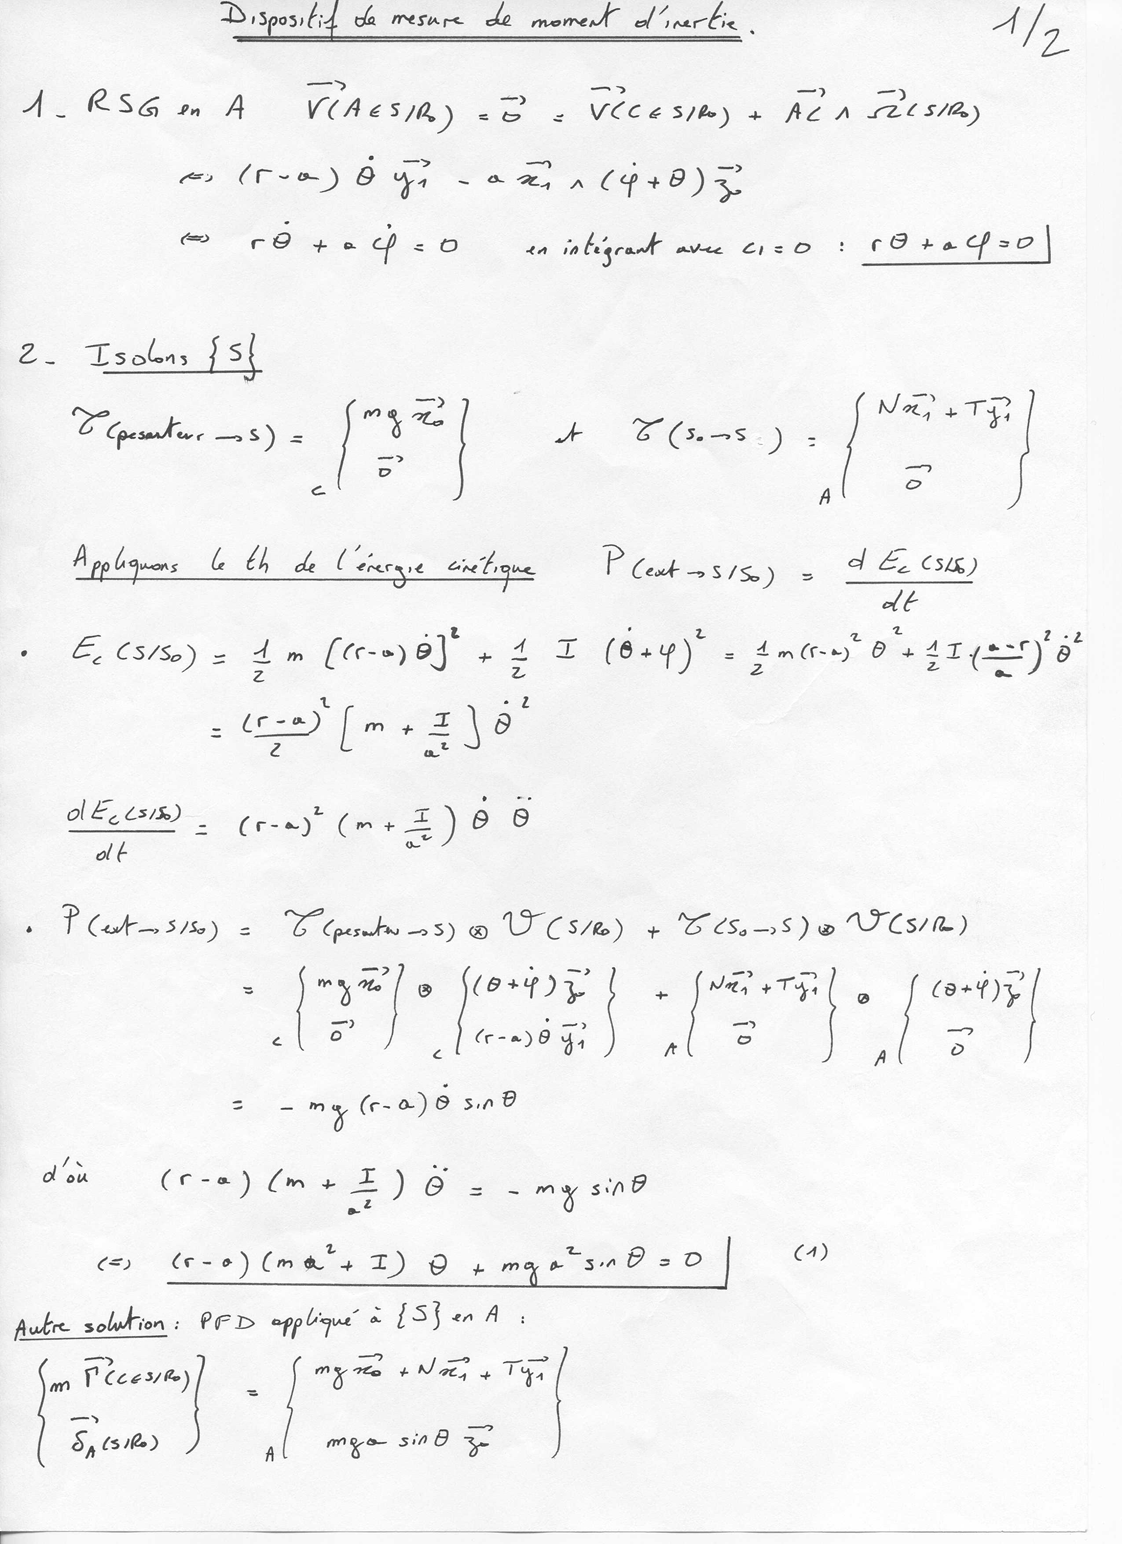 Dispositif de mesure de moment d'inertie.
1/2
1 - RSG en A $\vec{V}(A \in S/R_0) = \vec{0} = \vec{V}(C \in S/R_0) + \vec{AC} \wedge \vec{\Omega}(S/R_0)$
⇔ $(r-a)\dot{\theta}\,\vec{y_1} - a\,\vec{x_1} \wedge (\dot{\varphi}+\theta)\,\vec{z_0}$
⇔ $r\dot{\theta} + a\dot{\varphi} = 0$ en intégrant avec CI = 0 : $r\theta + a\varphi = 0$
2 - Isolons {S}
$\mathcal{T}(\text{pesanteur} \to S) = {}_C\begin{Bmatrix} mg\,\vec{x_0} \\ \vec{0} \end{Bmatrix}$ et $\mathcal{T}(S_0 \to S) = {}_A\begin{Bmatrix} N\vec{x_1} + T\vec{y_1} \\ \vec{0} \end{Bmatrix}$
Appliquons le th de l'énergie cinétique $P(ext \to S/S_0) = \frac{d\,E_c(S/S_0)}{dt}$
. $E_c(S/S_0) = \frac{1}{2} m [(r-a)\dot{\theta}]^2 + \frac{1}{2} I (\dot{\theta}+\varphi)^2 = \frac{1}{2} m (r-a)^2 \dot{\theta}^2 + \frac{1}{2} I \cdot \left(\frac{a-r}{a}\right)^2 \dot{\theta}^2$
$= \frac{(r-a)^2}{2} \left[ m + \frac{I}{a^2} \right] \dot{\theta}^2$
$\frac{dE_c(S/S_0)}{dt} = (r-a)^2 (m + \frac{I}{a^2})\,\dot{\theta}\,\ddot{\theta}$
. $P(ext \to S/S_0) = \mathcal{T}(\text{pesanteur} \to S) \otimes \mathcal{V}(S/R_0) + \mathcal{T}(S_0 \to S) \otimes \mathcal{V}(S/R_0)$
$= {}_C\begin{Bmatrix} mg\,\vec{x_0} \\ \vec{0} \end{Bmatrix} \otimes {}_C\begin{Bmatrix} (\theta+\dot{\varphi})\,\vec{z_0} \\ (r-a)\dot{\theta}\,\vec{y_1} \end{Bmatrix} + {}_A\begin{Bmatrix} N\vec{x_1} + T\vec{y_1} \\ \vec{0} \end{Bmatrix} \otimes {}_A\begin{Bmatrix} (\theta+\dot{\varphi})\,\vec{z_0} \\ \vec{0} \end{Bmatrix}$
$= - mg (r-a)\dot{\theta} \sin\theta$
d'où $(r-a)(m + \frac{I}{a^2})\,\ddot{\theta} = - mg \sin\theta$
⇔ $(r-a)(ma^2 + I)\,\theta + mg\,a^2 \sin\theta = 0$ (1)
Autre solution : PFD appliqué à {S} en A :
$\begin{Bmatrix} m\,\vec{\Gamma}(C \in S/R_0) \\ \vec{\delta_A}(S/R_0) \end{Bmatrix} = {}_A\begin{Bmatrix} mg\,\vec{x_0} + N\vec{x_1} + T\vec{y_1} \\ mga \sin\theta\,\vec{z_0} \end{Bmatrix}$